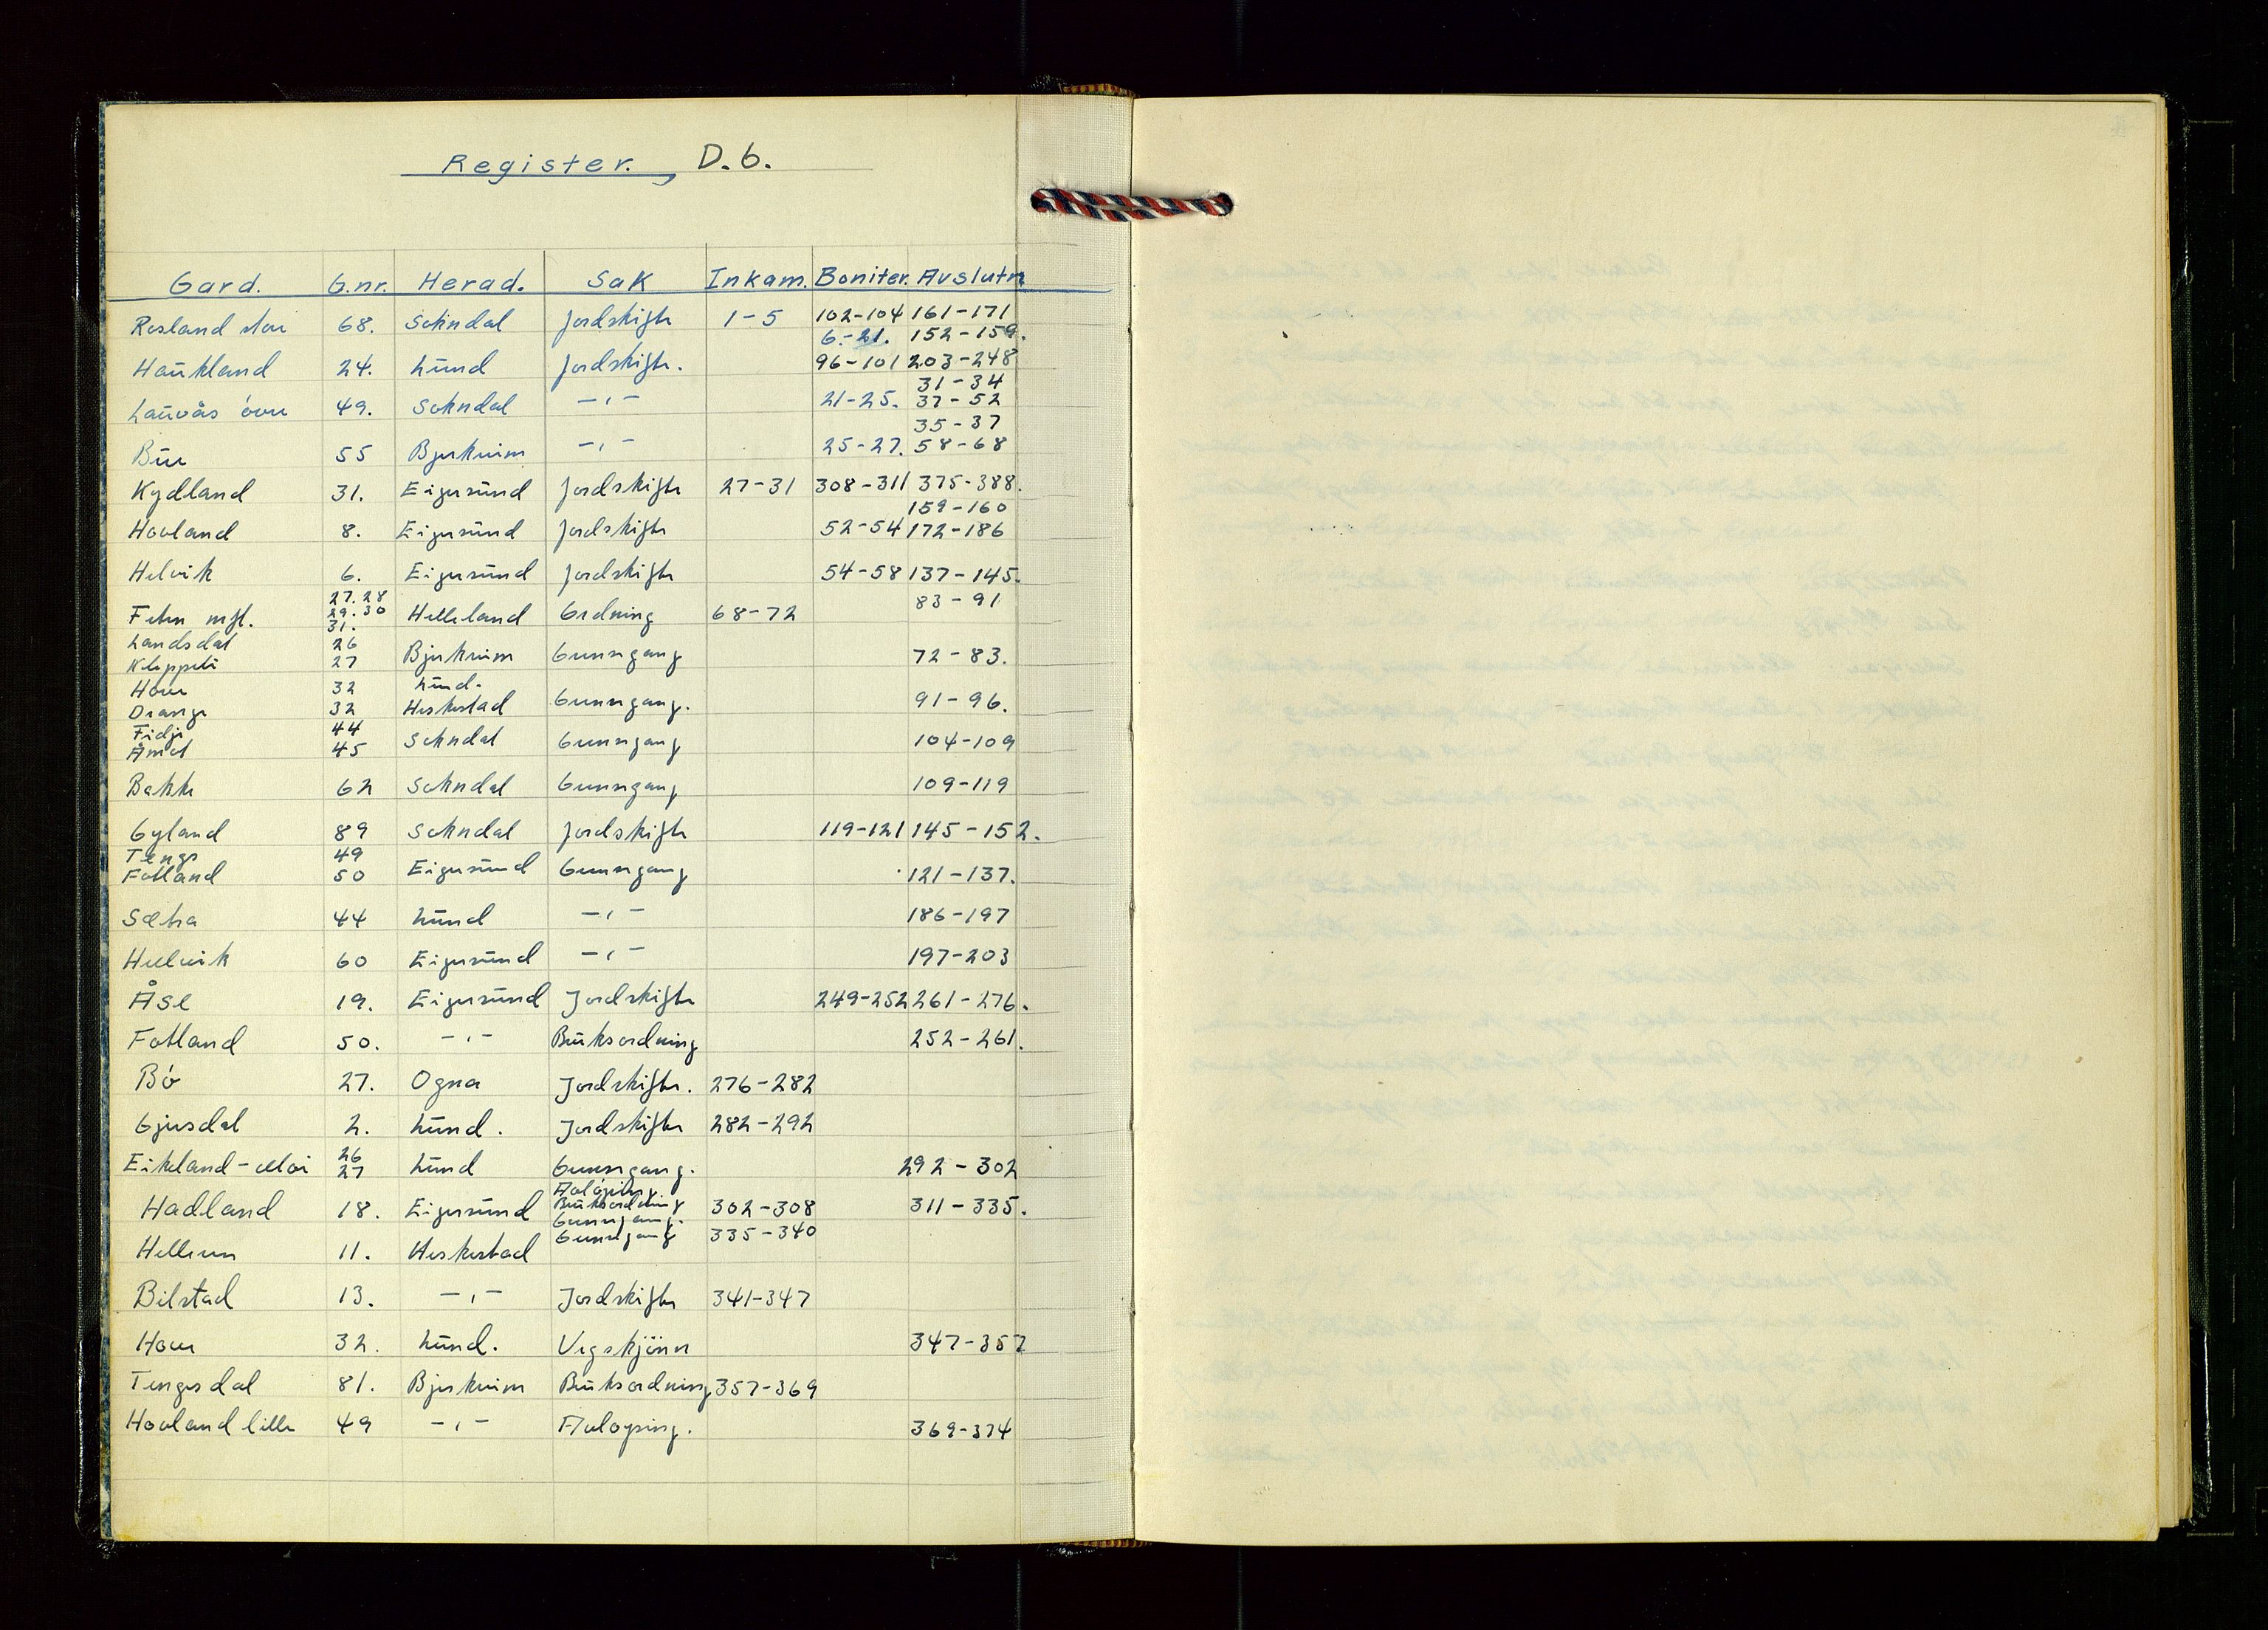 Register. D. 6.
Gard. G.nr. Herad. Sak Inkam. Boniter. Avslutn
Rosland stor 68. Sokndal Jordskifte 1-5 102-104 161-171
6.-21. 152-159.
Haukland 24. Lund Jordskifte. 96-101 203-248
31-34
Lauvås övre 49. Sokndal -,- 21-25. 37-52
35-37
Bue 55 Bjerkreim -,- 25-27. 58-68
Kydland 31. Eigersund Jordskifte 27-31 308-311 375-388.
159-160
Hovland 8. Eigersund Jordskifte 52-54 172-186
Helvik 6. Eigersund Jordskifte 54-58 137-145.
27.28 83-91
Feten mfl. 29.30 Helleland Ordning 68-72
31.
Landsdal 26
Kleppeli 27 Bjerkreim Grensgang 72-83.
Hove 32 Lund.
Drange 32 Heskestad Grensgang. 91-96.
Fidje 44
Åmot 45 Sokndal Grensgang 104-109
Bakke 62 Sokndal Grensgang 109-119
Gyland 89 Sokndal Jordskifte 119-121 145-152.
Tengs 49
Fotland 50 Eigersund Grensgang 121-137.
Sætra 44 Lund -,- 186-197
Hellvik 60 Eigersund -,- 197-203
Åse 19. Eigersund Jordskifte 249-252 261-276.
Fotland 50. -,- Bruksordning 252-261.
Bö 27. Ogna Jordskifte. 276-282
Gjusdal 2. Lund. Jordskifte 282-292
26
Eikeland-Moi 27 Lund Grensgang. 292-302
Avlöysing.
Hadland 18. Eigersund Bruksordning 302-308 311-335.
Grensgang.
Grensgang 335-340
Helleren 11. Heskestad
Bilstad 13. -,- Jordskifte 341-347
Hove 32. Lund. Vegskjönn 347-357
Tengesdal 81. Bjerkreim Bruksordning 357-369
Hovland lille 49 -,- Avloysing. 369-374